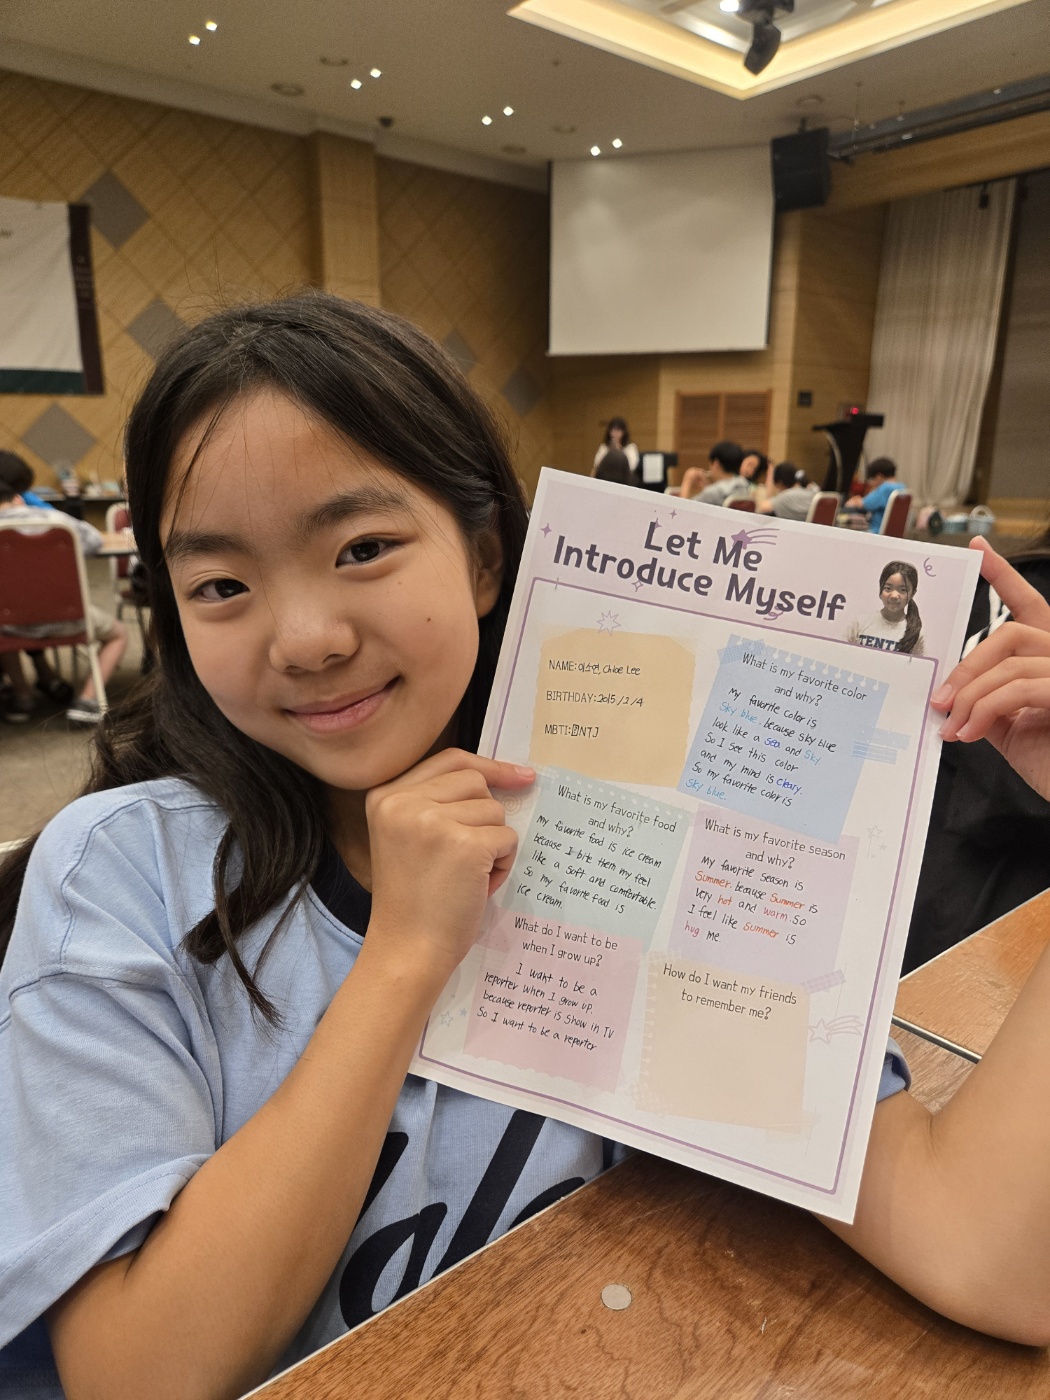 Let Me
Introduce Myself
TENTE
NAME: 이소연, Chloe Lee
BIRTHDAY: 2015/2/4
MBTI: ENTJ
What is my favorite color
and why?
My favorite color is
Sky blue. because sky blue
look like a sea and sky.
So I see this color
and my mind is cleary.
So my favorite color is
sky blue.
What is my favorite food
and why?
My favorite food is ice cream
because I bite them my feel
like a soft and comfortable.
So my favorite food is
ice cream.
What is my favorite season
and why?
My favorite season is
Summer. because Summer is
very hot and warm. So
I feel like Summer is
hug me.
What do I want to be
when I grow up?
I want to be a
reporter when I grow up.
because reporter is show in TV
So I want to be a reporter
How do I want my friends
to remember me?